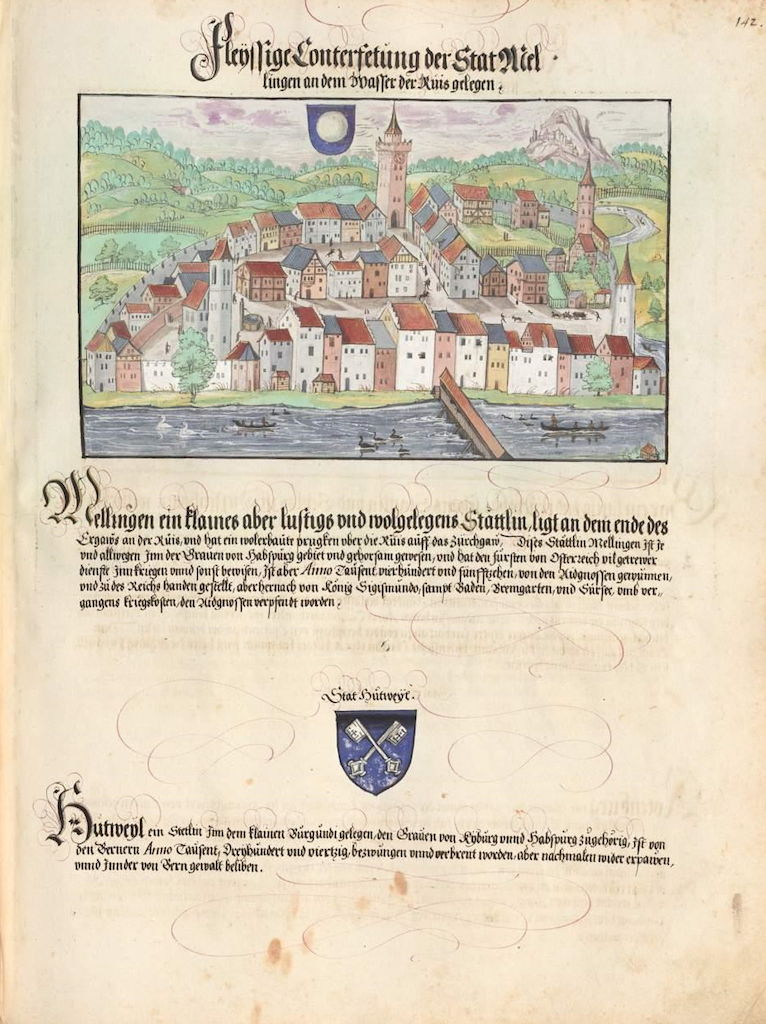 142.
Fleyssige Conterfetung der Stat Mel
lingen an dem Wasser der Rüis gelegen.
Mellingen ein klaines aber lustigs vnd wolgelegens Stättlin, ligt an dem ende des
Ergaws an der Rüis, vnd hat ein wolerbaute prugken vber die Rüis auff das Zürchgaw, Dises Stättlin Mellingen ist je
vnd allwegen jnn der Grauen von Habspürg gebiet vnd gehorsam gewesen, vnd hat den fürsten von Osterreich vil getrewer
dienste jnn kriegen vnnd sonst bewisen, Ist aber Anno Taüsent vierhündert vnd fünfftzehen, von den Aidgnossen gewünnen,
vnd zu des Reichs handen gestellt, aber hernach von König Sigismündo, sampt Baden, Bremgarten, vnd Sürsee, vmb ver-
gangens kriegskosten, den Aidgnossen verpfendt worden.
Stat Hütweyl.
Hütweyl ein Stetlin jnn dem klainen Bürgündi gelegen, den Grauen von Kyburg vnnd Habspürg zugehörig, ist von
den Bernern Anno Taüsent, Dreyhündert vnd viertzig, bezwüngen vnnd verbrent worden, aber nachmalen wider erpawen,
vnnd jnnder von Bern gewalt beliben.